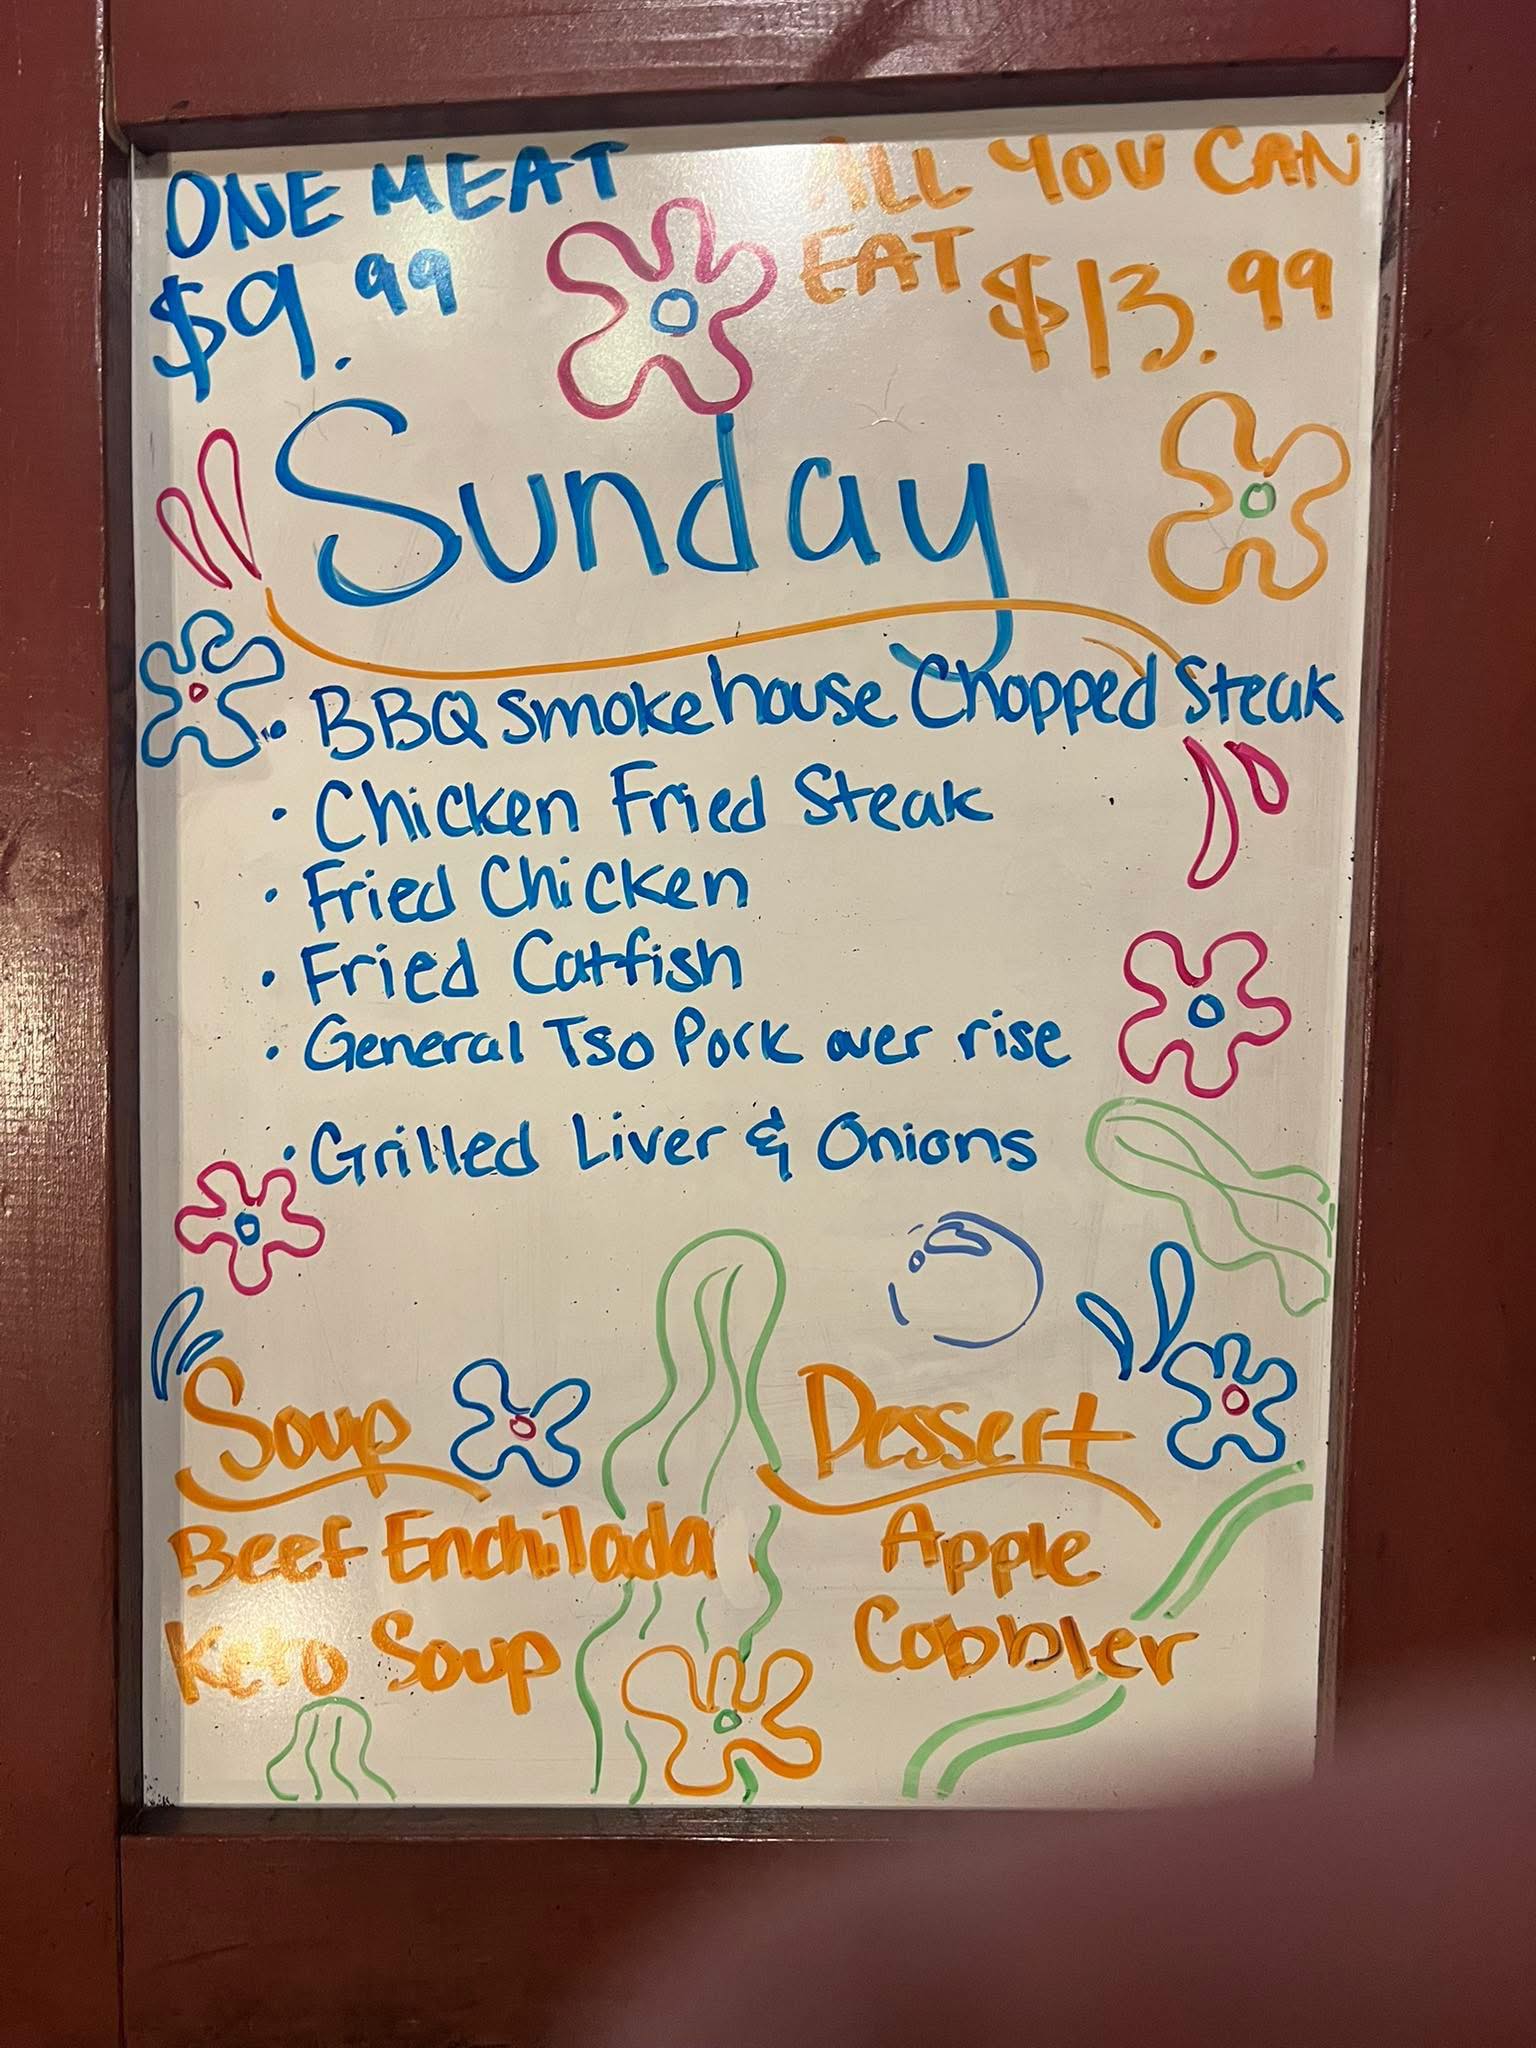 ONE MEAT
$9.99
ALL YOU CAN
EAT $13.99
Sunday
• BBQ Smokehouse Chopped Steak
• Chicken Fried Steak
• Fried Chicken
• Fried Catfish
• General Tso Pork over rise
• Grilled Liver & Onions
Soup
Beef Enchilada
Keto Soup
Dessert
Apple
Cobbler